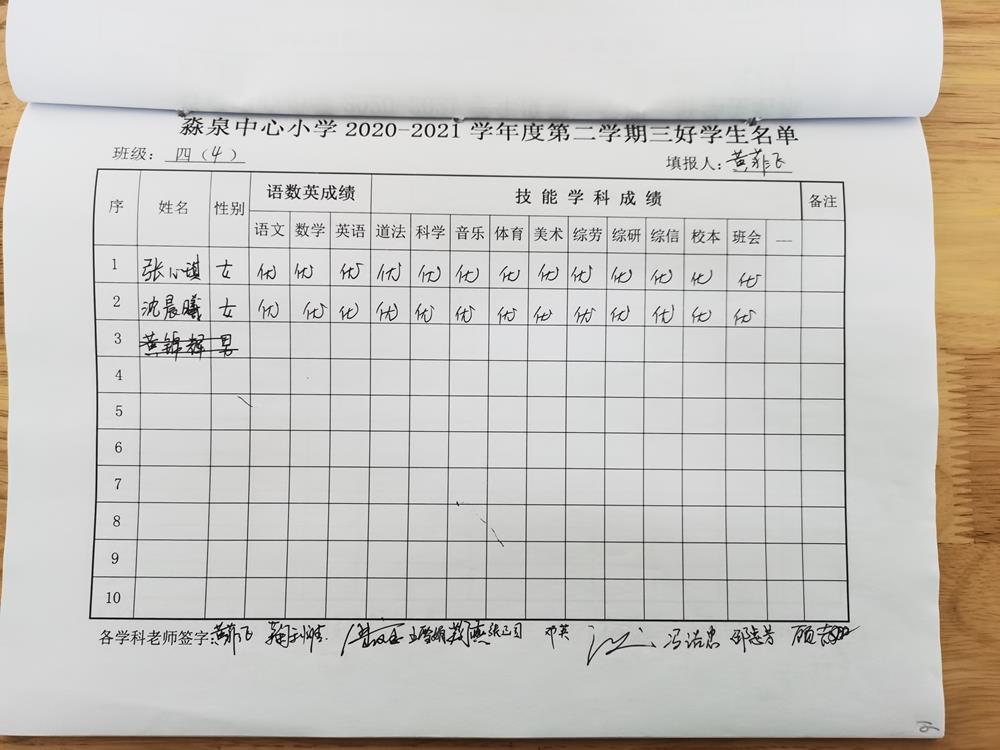 淼泉中心小学 2020-2021 学年度第二学期三好学生名单
班级： 四（4） 填报人：黄菲飞
序 姓名 性别 语数英成绩 技能学科成绩 备注
语文 数学 英语 道法 科学 音乐 体育 美术 综劳 综研 综信 校本 班会
1 张心琪 女 优 优 优 优 优 优 优 优 优 优 优 优 优
2 沈晨曦 女 优 优 优 优 优 优 优 优 优 优 优 优 优
3 黄锦辉 男
4
5
6
7
8
9
10
各学科老师签字：黄菲飞 邓英 冯洁忠 邵志芳